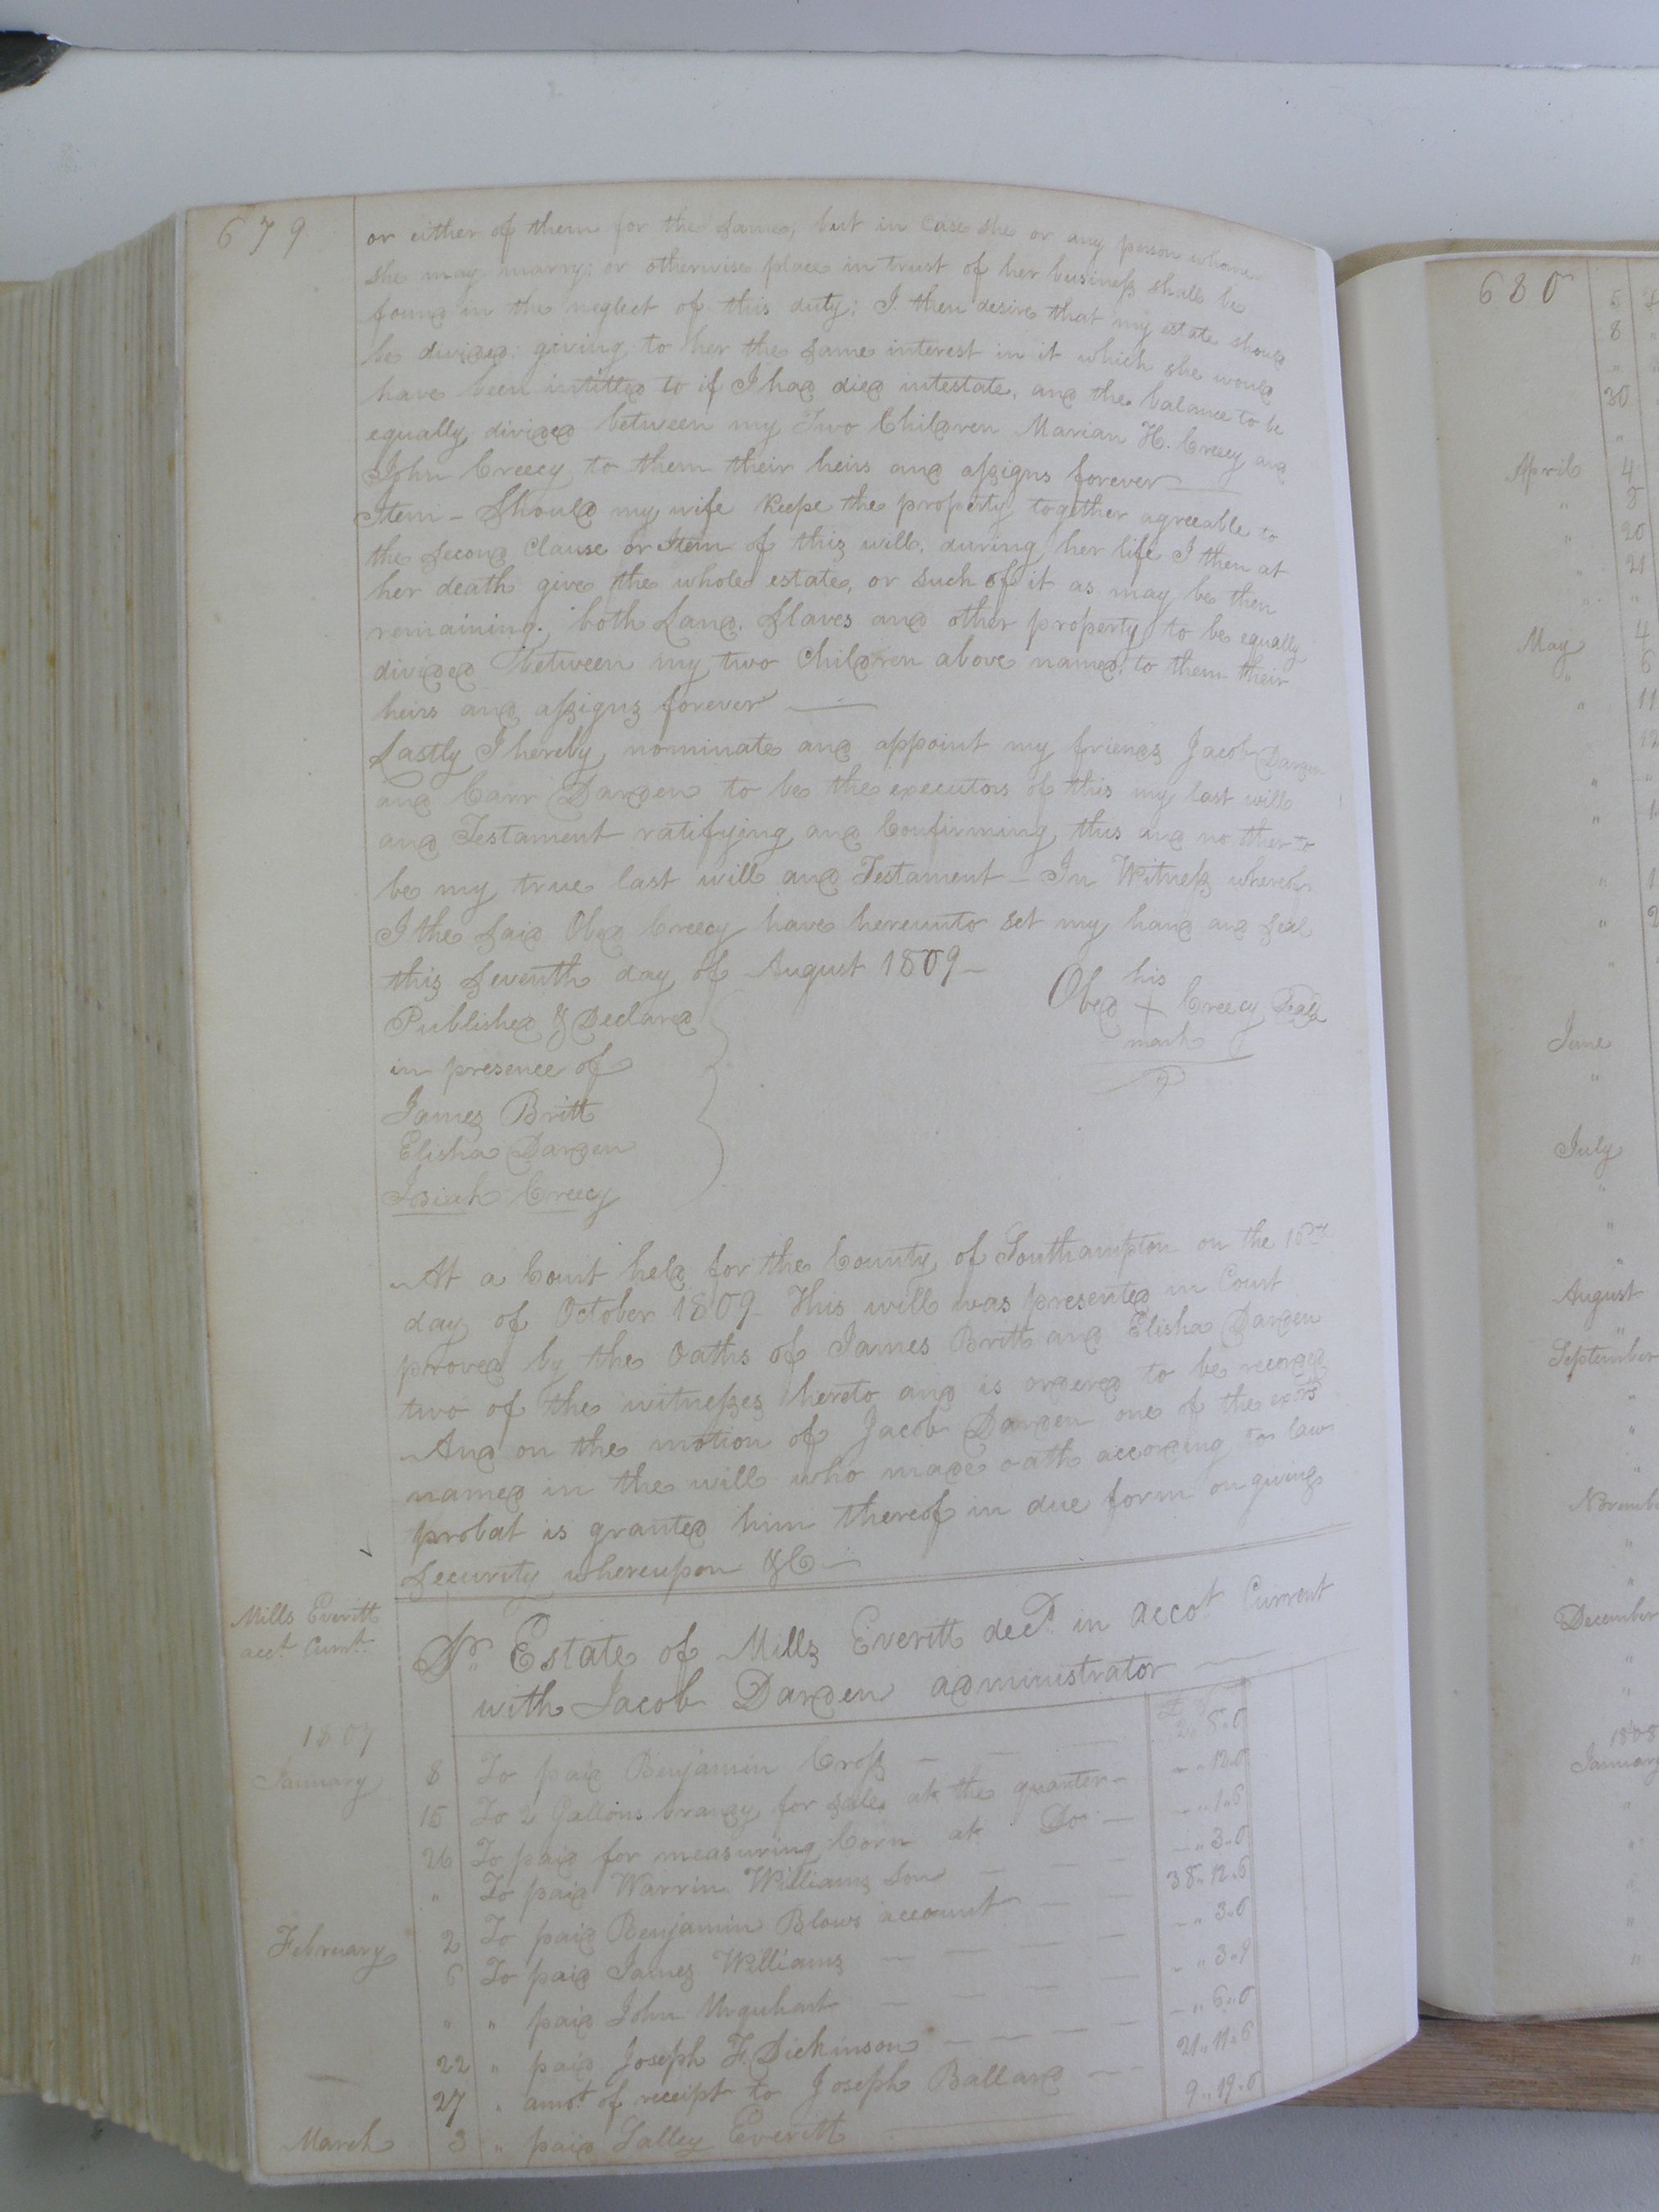 679
or either of them for the same, but in Case she or any person whome
she may marry; or otherwise place in trust of her business shall be
found in the neglect of this duty; I then desire that my estate should
be divided; giving to her the same interest in it which she would
have been intitled to if I had died intestate, and the balance to be
equally divided between my Two Children Marian H. Creecy and
John Creecy to them their heirs and assigns forever
Item - Should my wife Keepe the property together agreeable to
the second Clause or Item of this will, during her life I then at
her death give the whole estate, or such of it as may be then
remaining. both Land, Slaves and other property to be equally
divided between my two Children above named, to them their
heirs and assigns forever
Lastly I hereby nominate and appoint my friends Jacob Darden
and Carr Darden to be the executors of this my last will
and Testament ratifying and Confirming this and no other to
be my true last will and Testament - In Witness whereof
I the said Obed Creecy have hereunto set my hand and seal
this seventh day of August 1809 -
his
Obed + Creecy Seal
mark
Published & Declared
in presence of
James Britt
Elisha Darden
Josiah Creecy
At a Court held for the County of Southampton on the 16th
day of October 1809 - This will was presented in Court
proved by the Oaths of James Britt and Elisha Darden
two of the witnesses hereto and is ordered to be recorded
And on the motion of Jacob Darden one of the exors
named in the will who made oath according to law
probat is granted him thereof in due form on giving
security whereupon &C -
Mills Everitt
acct Curnt
Dr. Estate of Mills Everitt decd. in accot Current
with Jacob Darden administrator
1807
January 8 To paid Benjamin Cross 2..8.0
15 To 2 Gallons brandy for sale at the quarter - " 12.0
26 To paid for measuring Corn at Do - " 1.6
" To paid Warrin Williams Son - " 3.0
February 2 To paid Benjamin Blows account 38..12.6
6 To paid James Williams - " 3.0
" " paid John Urquhart - " 3.9
22 " paid Joseph F. Dickinson - " 6.0
27 " amot of receipt to Joseph Ballard 21..11.6
March 3 " paid Salley Everitt 9..19.0
680
5
8
"
30
"
April 4
" 8
" 20
" 21
" "
May 4
" 6
" 11
12
"
"
"
"
"
June
"
July
"
"
"
August
"
September
"
"
"
"
"
December
"
"
1808
January
"
"
"
"
"